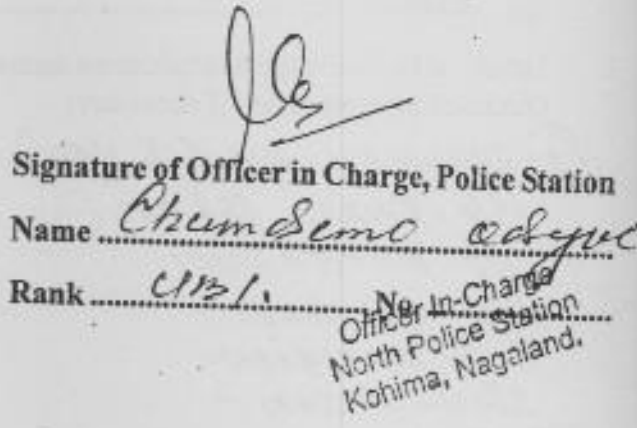 Signature of Officer in Charge, Police Station
Name
Rank UBI. No
Officer In-Charge
North Police Station
Kohima, Nagaland.